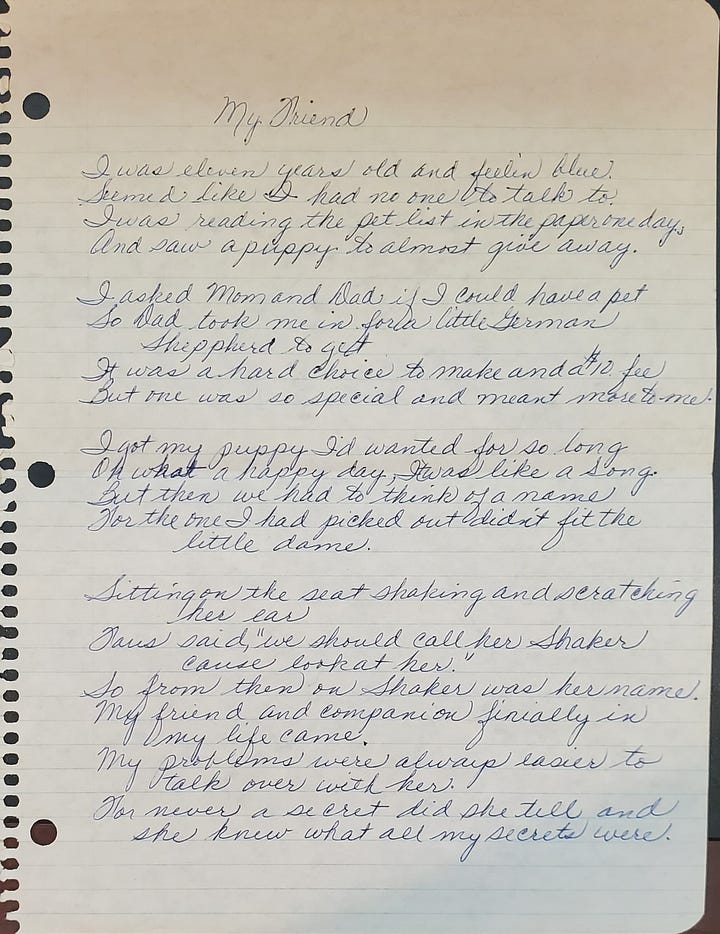 My Friend
I was eleven years old and feelin blue.
Seemed like I had no one to talk to.
I was reading the pet list in the paper one day,
And saw a puppy to almost give away.
I asked Mom and Dad if I could have a pet
So Dad took me in for a little German
Sheppherd to get
It was a hard choice to make and a $10. fee
But one was so special and meant more to me.
I got my puppy I'd wanted for so long
Oh what a happy day, It was like a song.
But then we had to think of a name
For the one I had picked out didn't fit the
little dame.
Sitting on the seat shaking and scratching
her ear
said, "we should call her Shaker
cause look at her."
So from then on Shaker was her name.
My friend and companion finially in
my life came.
My problems were always easier to
talk over with her.
For never a secret did she tell and
she knew what all my secrets were.